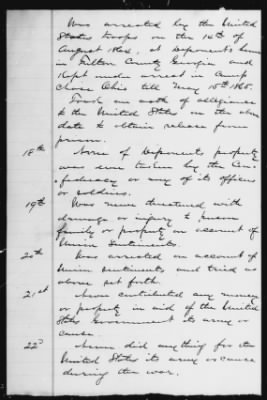 Was arrested by the United
States troops on the 14th of
August 1864, at Deponents home
in Fulton County Georgia and
Kept under arrest in Camp
Chase Ohio till May 15th 1865.
Took an oath of allegiance
to the United States on the above
date to obtain release from
prison.
18th None of Deponents property
was ever taken by the Con-
federacy or any of its officers
or soldiers.
19th Was never threatened with
damage or injury to person
family or property on account of
Union Sentiments.
20th Was arrested on account of
Union sentiments and tried as
above set forth.
21st Never contributed any money
or property in aid of the United
States Government its army or
cause.
22d Never did anything for the
United States its army or cause
during the war.